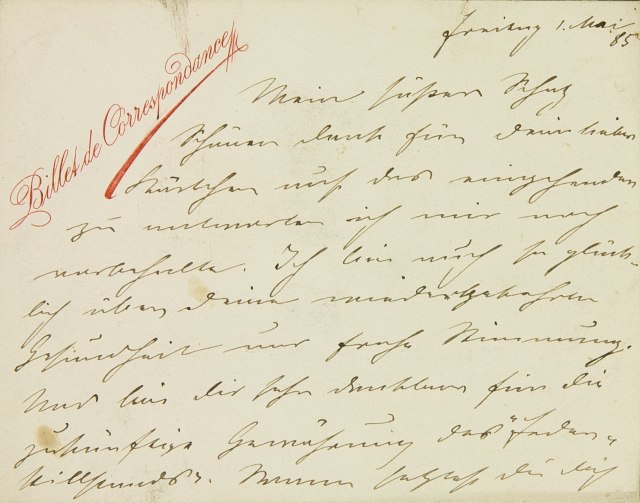 Billet de Correspondance
Freitag 1. Mai
85
Mein süßer Schatz
Schönen Dank für Dein liebes
Kärtchen auf das eingehender
zu antworten ich mir noch
vorbehalte. Ich bin auch so glück-
lich über Deine wiedergekehrte
Gesundheit und frohe Stimmung.
Und bin Dir sehr dankbar für die
zukünftige Gewährung des "Feder-
stillstands". Wenn Du Dich